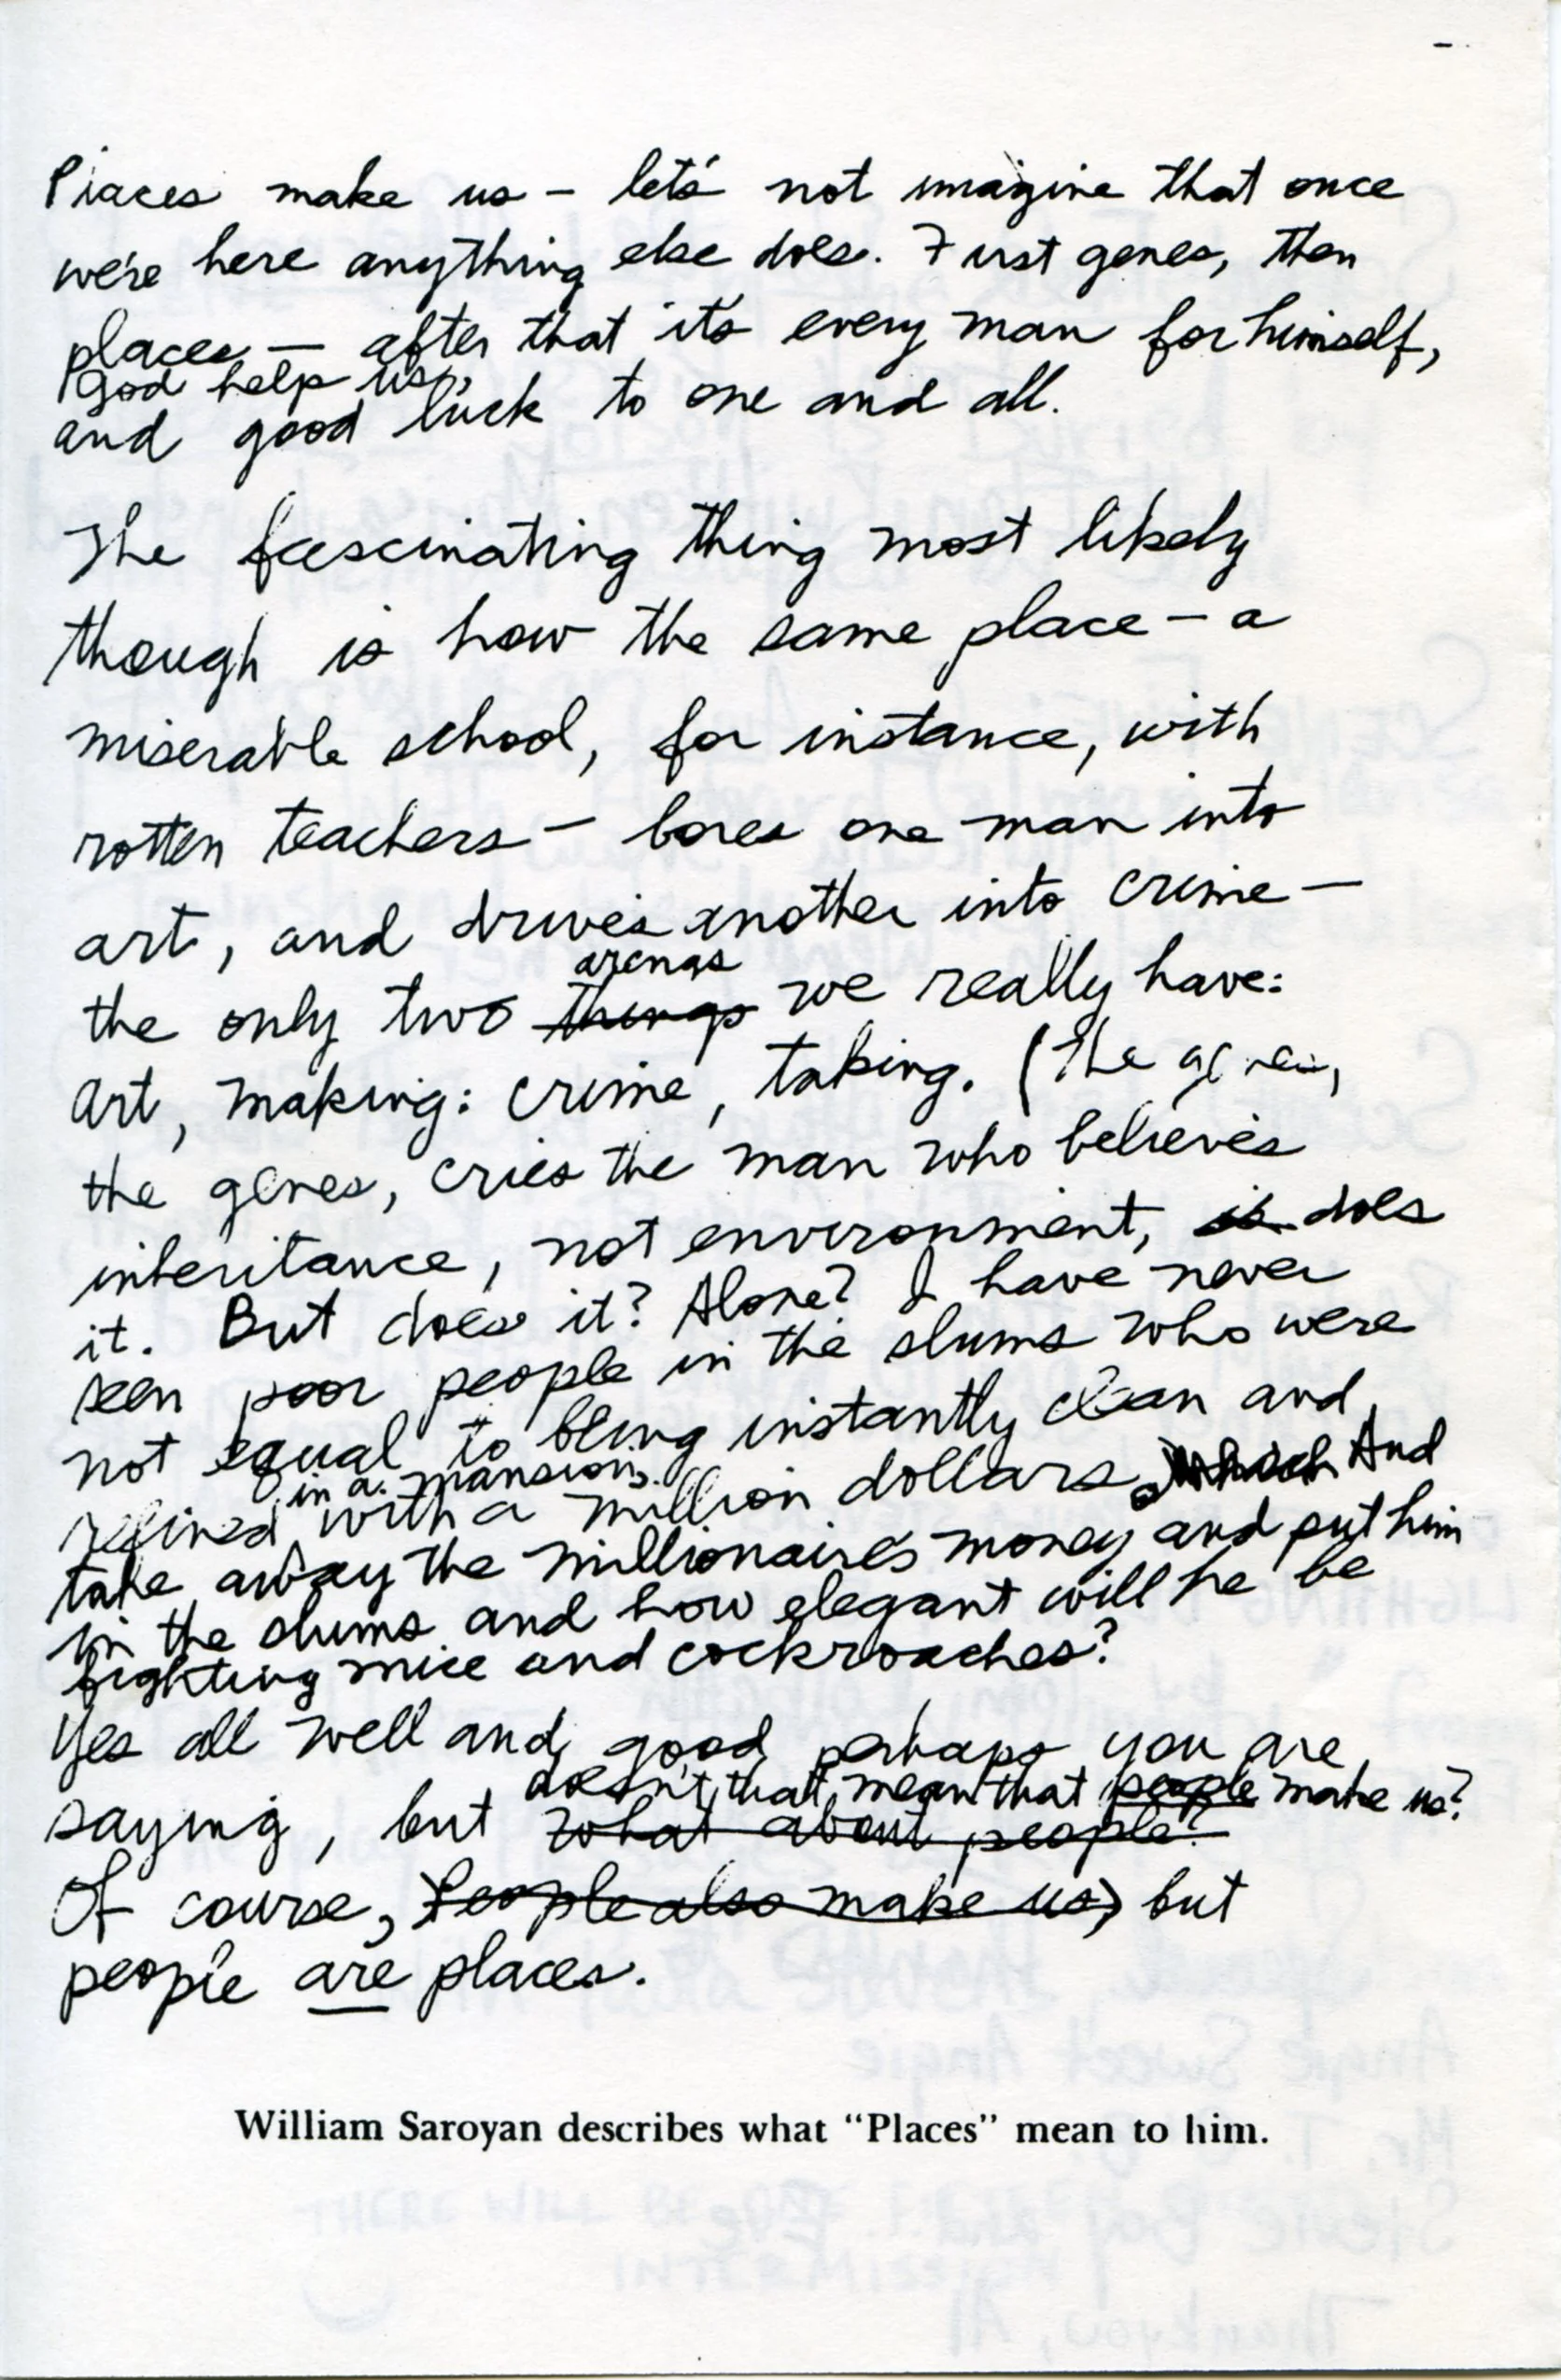 Places make us — let's not imagine that once
we're here anything else does. First genes, then
places — after that it's every man for himself,
God help us,
and good luck to one and all.
The fascinating thing most likely
though is how the same place — a
miserable school, for instance, with
rotten teachers — bores one man into
art, and drives another into crime —
arenas
the only two things we really have:
Art, making: crime, taking. (The genes,
the genes, cries the man who believes
inheritance, not environment, is does
it. But does it? Alone? I have never
seen poor people in the slums who were
not equal to being instantly clean and
in a mansion.
refined with a million dollars which And
take away the millionaire's money and put him
in the slums and how elegant will he be
fighting mice and cockroaches?
Yes all well and good perhaps you are
doesn't that mean that people make us?
saying, but what about people?
Of course, people also make us, but
people are places.
William Saroyan describes what “Places” mean to him.